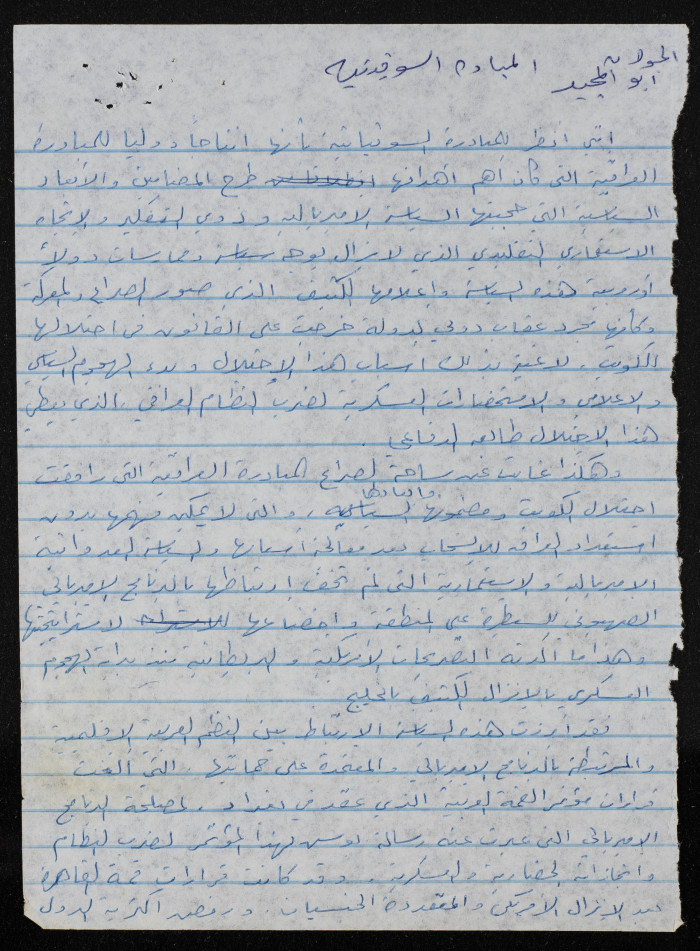 الجولان
أبو المجيد
المبادرة السوفيتية
انني انظر للمبادرة السوفياتية بأنها انفتاحاً دوليا للمبادرة
العراقية التي كان أهم أهدافها طرح المضامين والأبعاد
السياسية التي حجبتها السياسة الامبريالية وذوي التفكير والاتجاه
الاستعماري التقليدي الذي لا يزال يوجه سياسة وممارسات دولاً
أوروبية هذه السياسة واعلامها المكثف الذي صور الصراع والمعركة
وكأنها مجرد عقاب دولي لدولة خرجت على القانون في احتلالها
الكويت، لاغية بذلك أسباب هذا الاحتلال وبدء الهجوم السياسي
والاعلامي والاستحضارات العسكرية لضرب النظام العراقي، الذي يعطي
هذا الاحتلال طابعه الدفاعي.
وهكذا غابت عن ساحة الصراع المبادرة العراقية التي رافقت
احتلال الكويت ومضمونها السياسي وابعادها، والتي لا يمكن فهمها بدون
استعداد العراق للانسحاب بعد معالجة أسبابها والسياسة العدوانية
الامبريالية والاستعمارية التي لم تخف ارتباطها بالبرنامج الامبريالي
الصهيوني للسيطرة على المنطقة واخضاعها لاستراتيجيتها
وهذا ما أكدته التصريحات الأمريكية والبريطانية منذ بداية الهجوم
العسكري بالانزال المكثف بالخليج
فقد أبرزت هذه السياسة الارتباط بين النظم العربية الاقليمية
والمرتبطة بالبرنامج الامبريالي والمعتمدة على حمايتها، التي ألغت
قرارات مؤتمر القمة العربية الذي عقد في بغداد، لمصلحة البرنامج
الامبريالي التي عبرت عنه رسالة بوش لهذا المؤتمر لضرب النظام
وانجازاته الحضارية والعسكرية. وقد كانت قرارات قمة القاهرة
عبد الانزال الأمريكي والمتعددة الجنسيات. ورفض أكثرية الدول